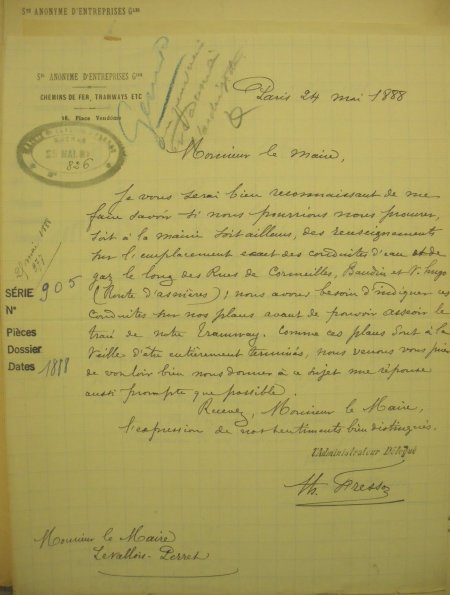 Sté ANONYME D'ENTREPRISES Gles
Sté ANONYME D'ENTREPRISES Gles
CHEMINS DE FER, TRAMWAYS ETC
16, Place Vendôme
Paris 24 mai 1888
25 MAI 88
826
Monsieur le Maire,
Je vous serai bien reconnaissant de me
faire savoir si nous pourrions nous procurer,
soit à la mairie soit ailleurs, des renseignements
sur l'emplacement exact des conduites d'eau et de
gaz le long des Rues de Cormeilles, Baudin et V. Hugo
(Route d'asnières); nous avons besoin d'indiquer ces
Conduites sur nos plans avant de pouvoir asseoir le
tracé de notre Tramway. Comme ces plans sont à la
Veille d'être entièrement terminés, nous venons vous prier
de vouloir bien nous donner à ce sujet une réponse
aussi prompte que possible.
Recevez, Monsieur le Maire,
l'expression de nos sentiments bien distingués.
L'Administrateur Délégué
Th. Fresso
mai 1888
SÉRIE 905
N°
Pièces
Dossier
Dates 1888
Monsieur le Maire
Levallois-Perret